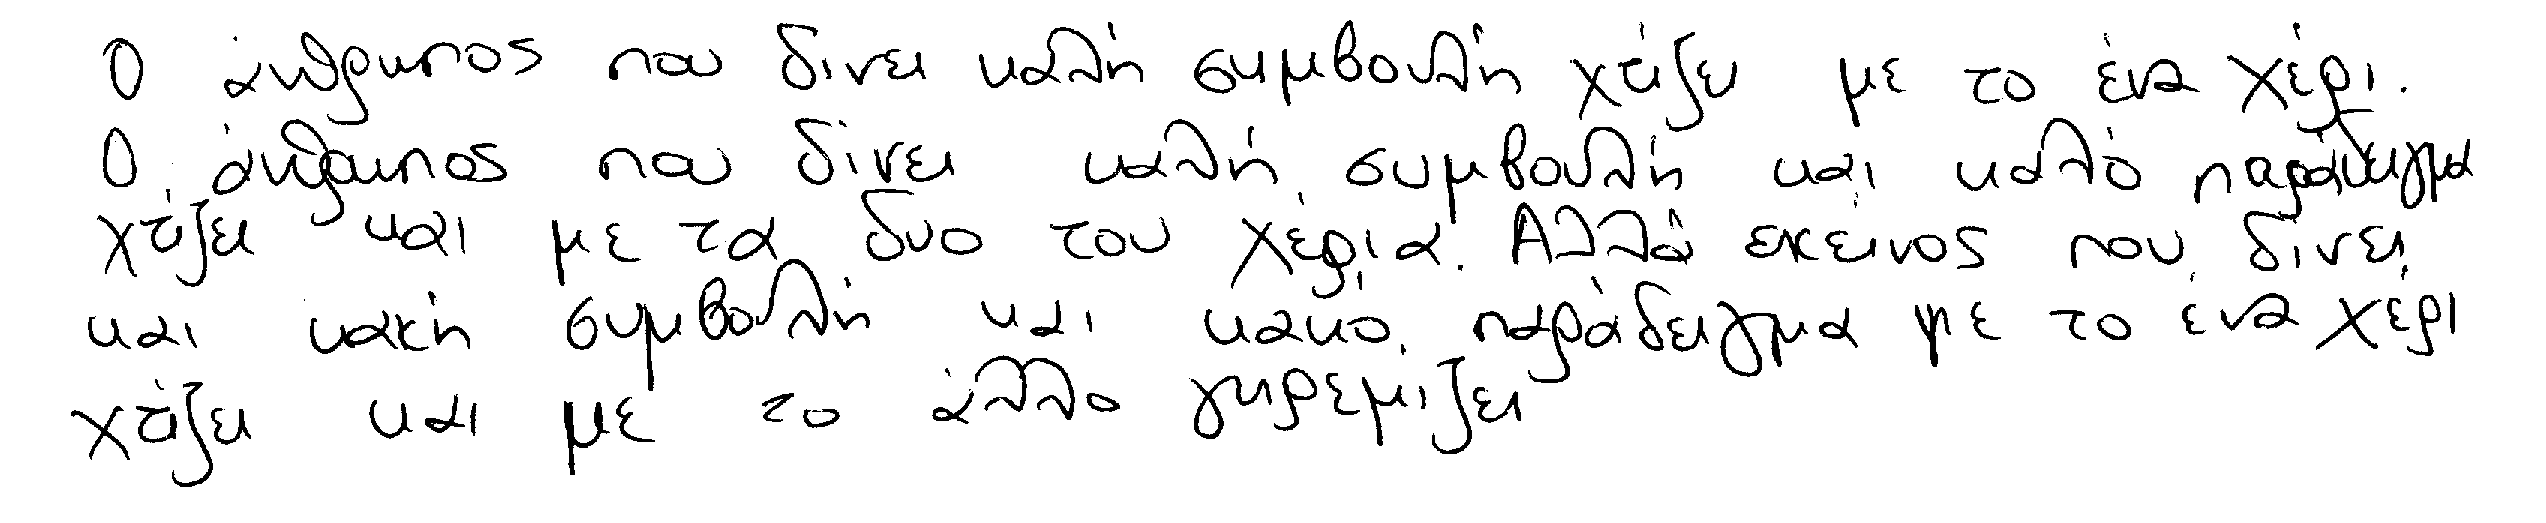 Ο άνθρωπος που δίνει καλή συμβουλή χτίζει με το ένα χέρι.
Ο άνθρωπος που δίνει καλή συμβουλή και καλό παράδειγμα
χτίζει και με τα δυο του χέρια. Αλλά εκείνος που δίνει
και κακή συμβουλή και κακό παράδειγμα με το ένα χέρι
χτίζει και με το άλλο γκρεμίζει